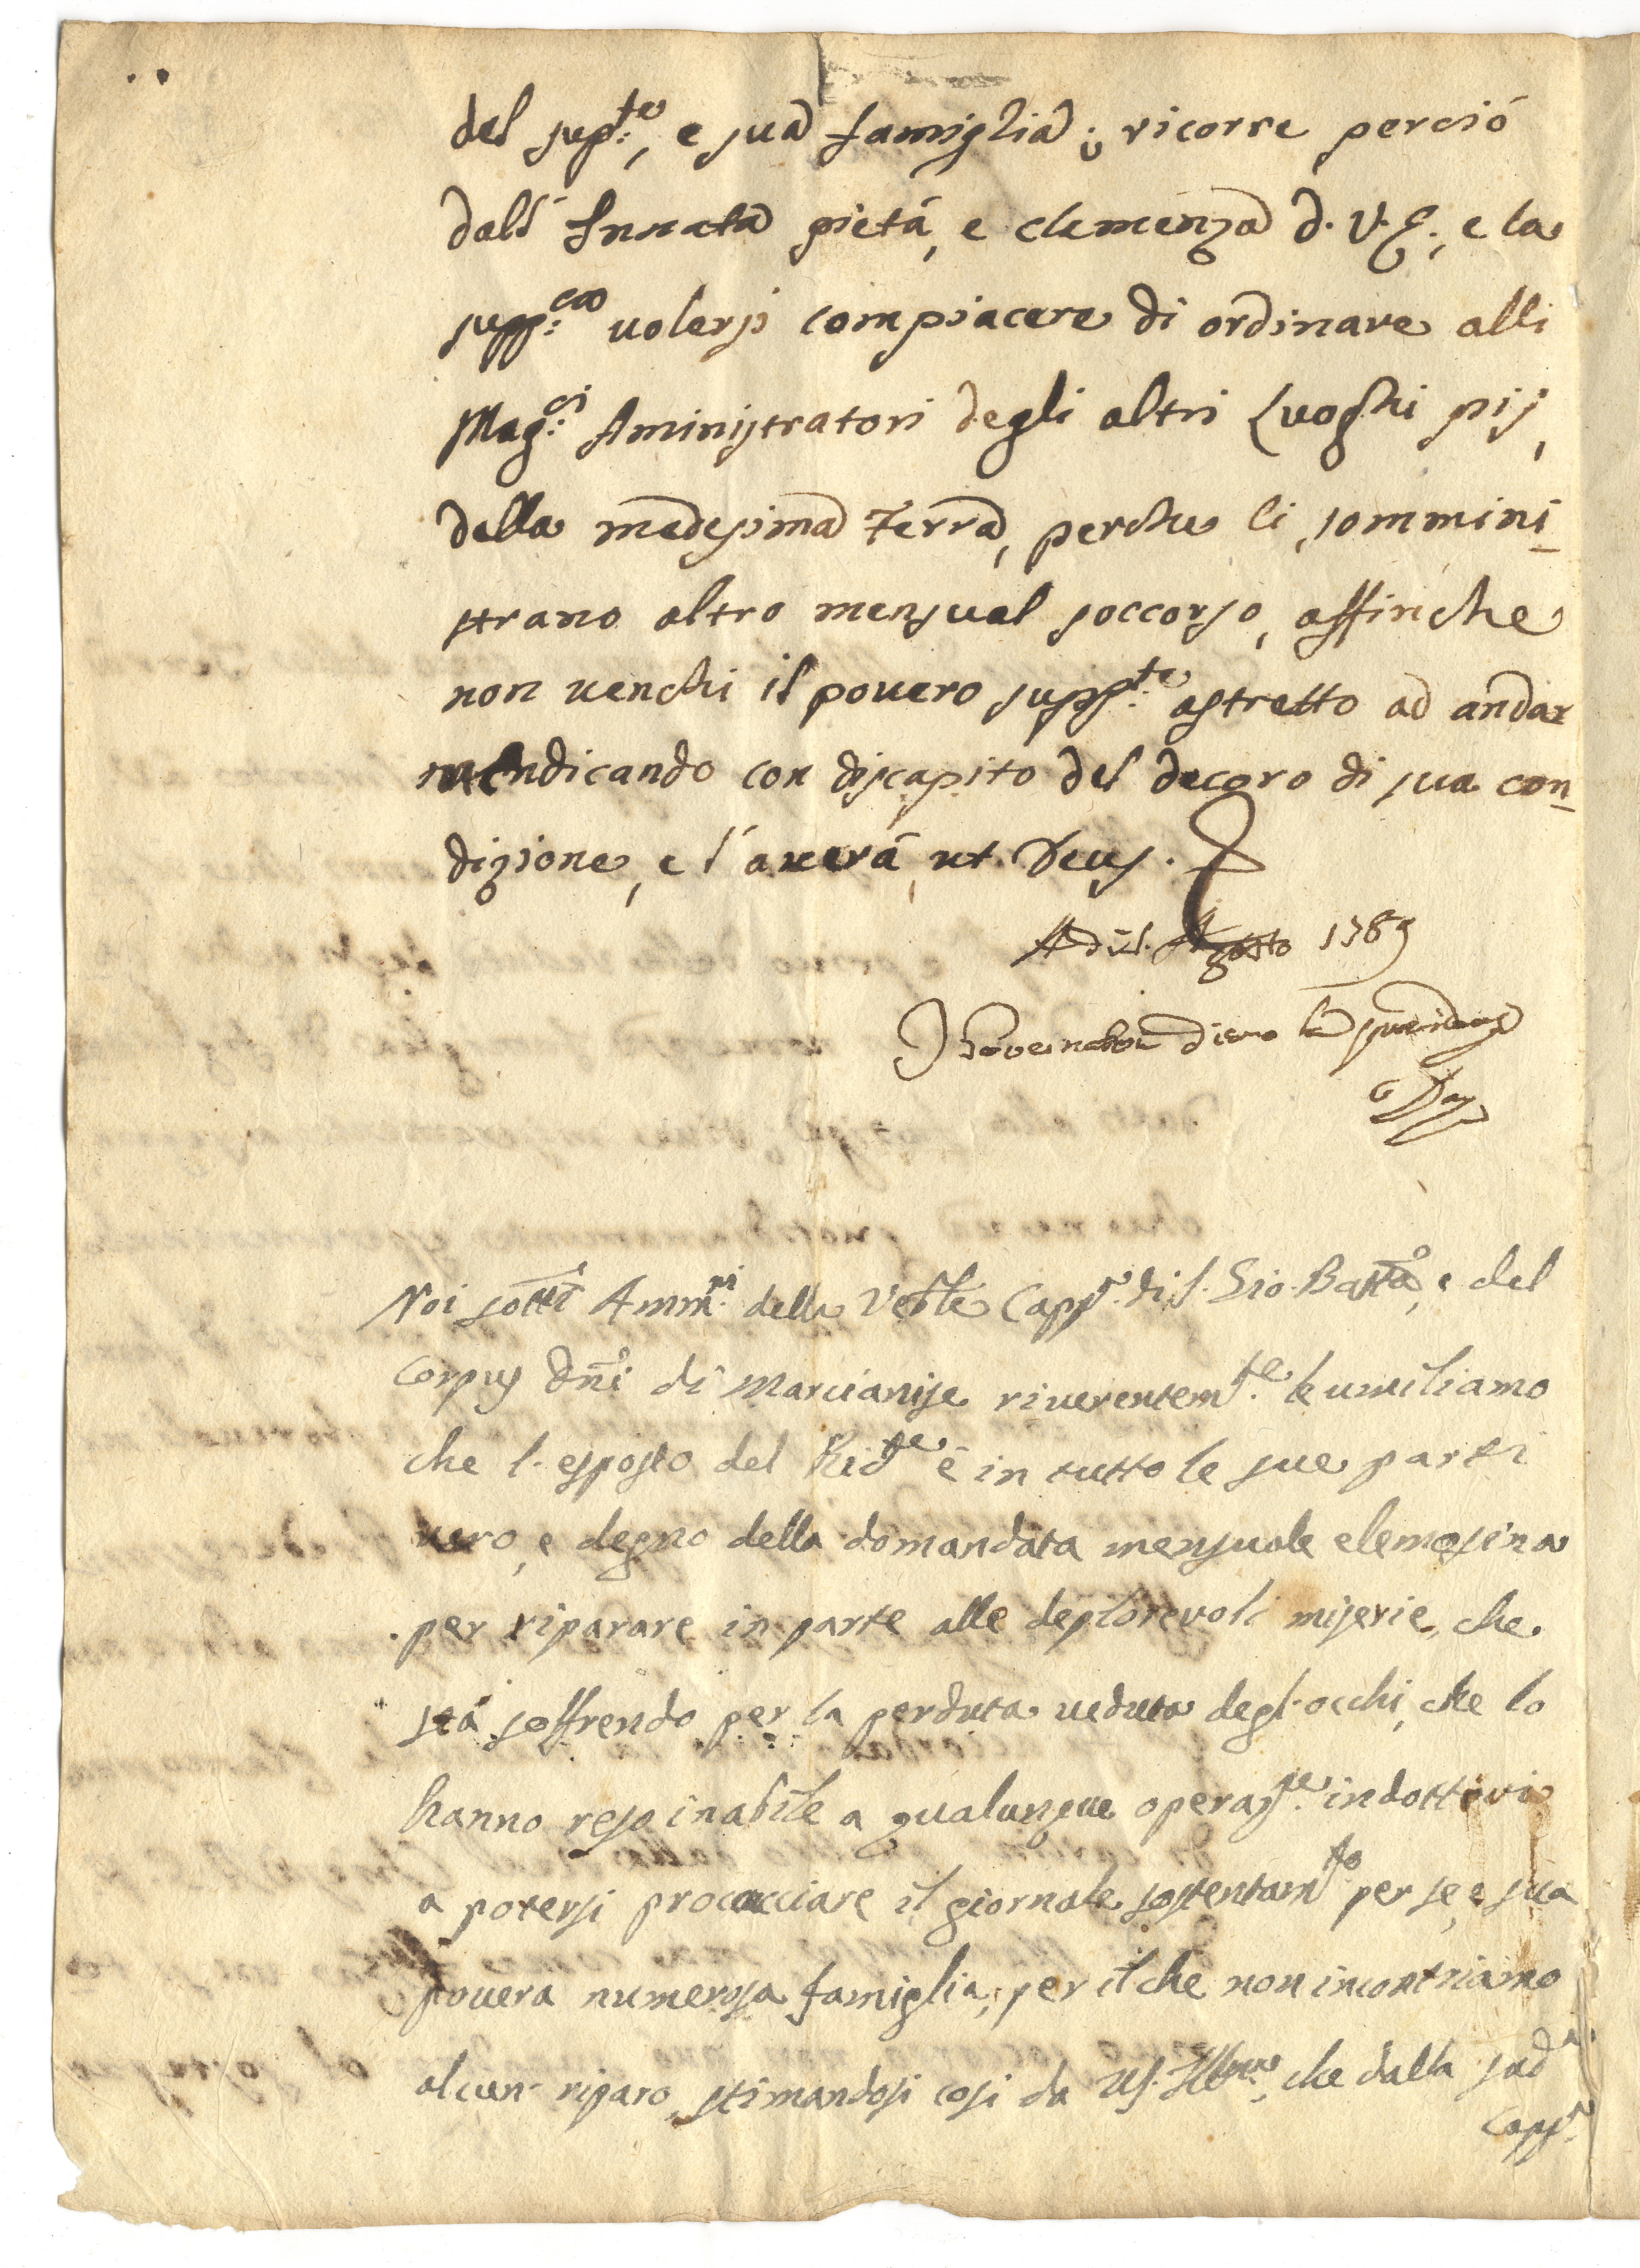 del sup:te, e sua famiglia; ricorre perciò
dall' Innata pietà, e clemenza d. V. E., e la
supp:ca volersi compiacere di ordinare alli
Mag:ci Aministratori degli altri Luoghi pij,
della medesima Terra, perche li sommini
strano altro mensual soccorso, affinche
non venchi il povero supp:te astretto ad andar
mendicando con discapito del decoro di sua con
dizione, e l'averà, ut Deus.
A di Agosto 1789
Governatori dicano
Noi sotti Amm:ri della Vble Capp:a di S. Gio: Batta, e del
Corpus Dni di Marcianise riverentem:te le umiliamo
che l'esposto del Ricte è in tutto le sue parti
vero, e degno della domandata mensuale elemosina
per riparare in parte alle deplorevoli miserie, che
stà soffrendo per la perduta veduta degl'occhi, che lo
hanno reso inabile a qualunque operaz:ne indottivi
a potersi procacciare il giornale sostentam:to per se, e sua
povera numerosa famiglia; per il che non incontriamo
alcun riparo, stimandosi così da VS. Illma, che dalla sud:a
Capp:a